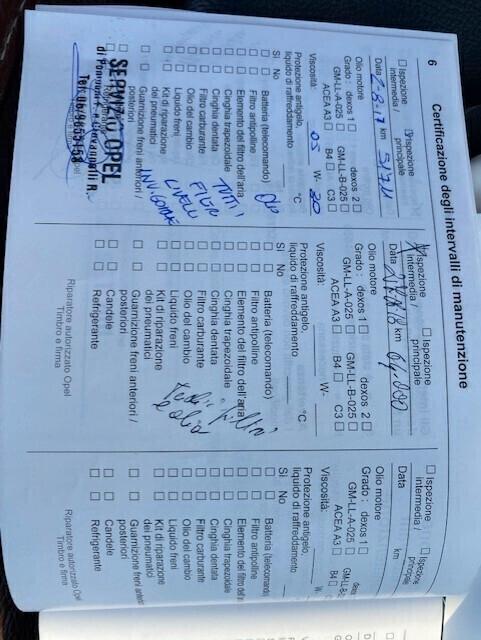 6 Certificazione degli intervalli di manutenzione
Ispezione intermedia /
Ispezione principale
Data 2-8-17 km
Olio motore
Grado: dexos 1 □ dexos 2 □
GM-LL-A-025 □ GM-LL-B-025 □
ACEA A3 □ B4 □ C3 □
Viscosità: 05 W- 30
Protezione antigelo,
liquido di raffreddamento °C
SI No
□ □ Batteria (telecomando) OK
□ □ Filtro antipolline
□ □ Elemento del filtro dell'aria
□ □ Cinghia trapezoidale TUTTI
□ □ Cinghia dentata
□ □ Filtro carburante FILTRI
□ □ Olio del cambio
□ □ Liquido freni LIVELLI
□ □ Kit di riparazione
dei pneumatici
□ □ Guarnizione freni anteriori /
posteriori
SERVIZIO OPEL
Tel. 06
□ Ispezione intermedia /
□ Ispezione principale
Data km
Olio motore
Grado: dexos 1 □ dexos 2 □
GM-LL-A-025 □ GM-LL-B-025 □
ACEA A3 □ B4 □ C3 □
Viscosità: W-
Protezione antigelo,
liquido di raffreddamento °C
SI No
□ □ Batteria (telecomando)
□ □ Filtro antipolline
□ □ Elemento del filtro dell'aria
□ □ Cinghia trapezoidale
□ □ Cinghia dentata
□ □ Filtro carburante
□ □ Olio del cambio
□ □ Liquido freni
□ □ Kit di riparazione
dei pneumatici
□ □ Guarnizione freni anteriori /
posteriori
□ □ Candele
□ □ Refrigerante
Riparatore autorizzato Opel
Timbro e firma
□ Ispezione intermedia /
□ Ispezione principale
Data km
Olio motore
Grado: dexos 1 □
GM-LL-A-025 □
ACEA A3 □ B4 □
Viscosità:
Protezione antigelo,
liquido di raffreddamento
SI No
□ □ Batteria (telecomando)
□ □ Filtro antipolline
□ □ Elemento del filtro
□ □ Cinghia trapezoidale
□ □ Cinghia dentata
□ □ Filtro carburante
□ □ Olio del cambio
□ □ Liquido freni
□ □ Kit di riparazione
dei pneumatici
□ □ Guarnizione freni
posteriori
□ □ Candele
□ □ Refrigerante
Riparatore autorizzato Opel
Timbro e firma